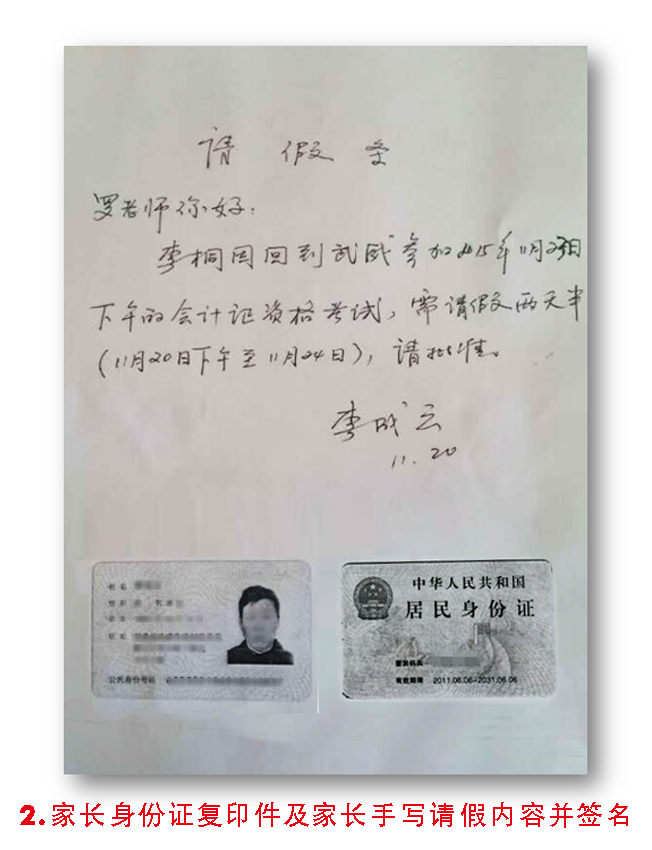 请假条
罗老师你好：
李桐因回到武威参加2015年11月23日
下午的会计记资格考试，需请假两天半
（11月20日下午至11月24日），请批准。
李成云
11.20
公民身份号码
中华人民共和国
居民身份证
签发机关
有效期限 2011.06.06-2031.06.06
2.家长身份证复印件及家长手写请假内容并签名